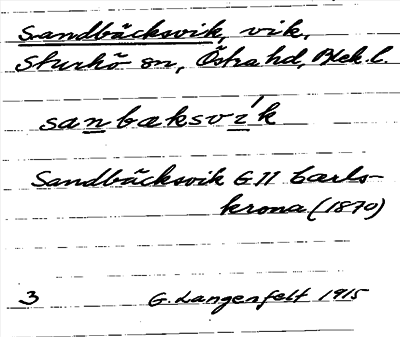 Sandbäcksvik, vik,
Sturkö sn, Östra hd, Blek. l.
sanbæksvi´k
Sandbäcksvik G 11 Carls-
krona (1870)
3 G. Langenfelt 1915